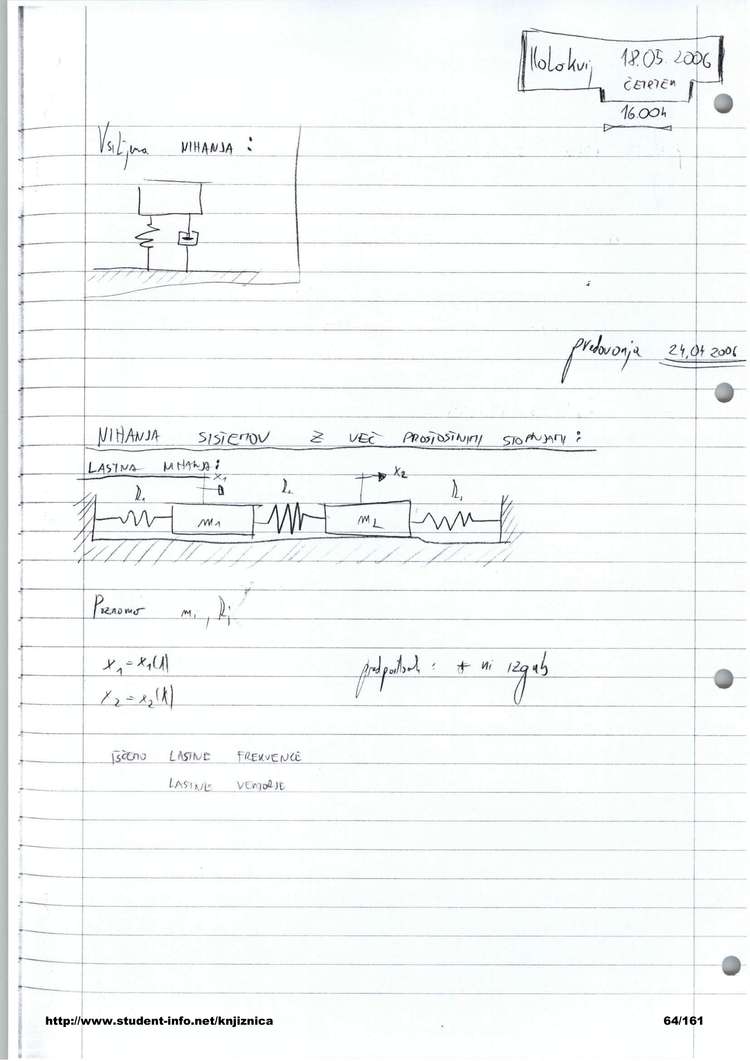 Kolokvij 18.05.2006
ČETRTEK
16.00h
Vsiljena NIHANJA :
predavanja 24,04 2006
NIHANJA SISTEMOV Z VEČ PROSTOSTNIMI STOPNJAMI :
LASTNA NIHANJA :
x₁ x₂
m₁ m₂
POZNAMO
x₁ = x₁(t)
x₂ = x₂(t)
predpostavk : * ni izgub
IŠČEMO LASTNE FREKVENCE
LASTNE VEKTORJE
http://www.student-info.net/knjiznica 64/161